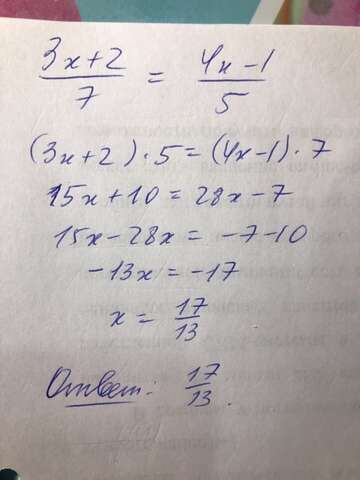 3x+2/7 = 4x-1/5
(3x+2)·5=(4x-1)·7
15x+10=28x-7
15x-28x=-7-10
-13x=-17
x=17/13
Ответ: 17/13.